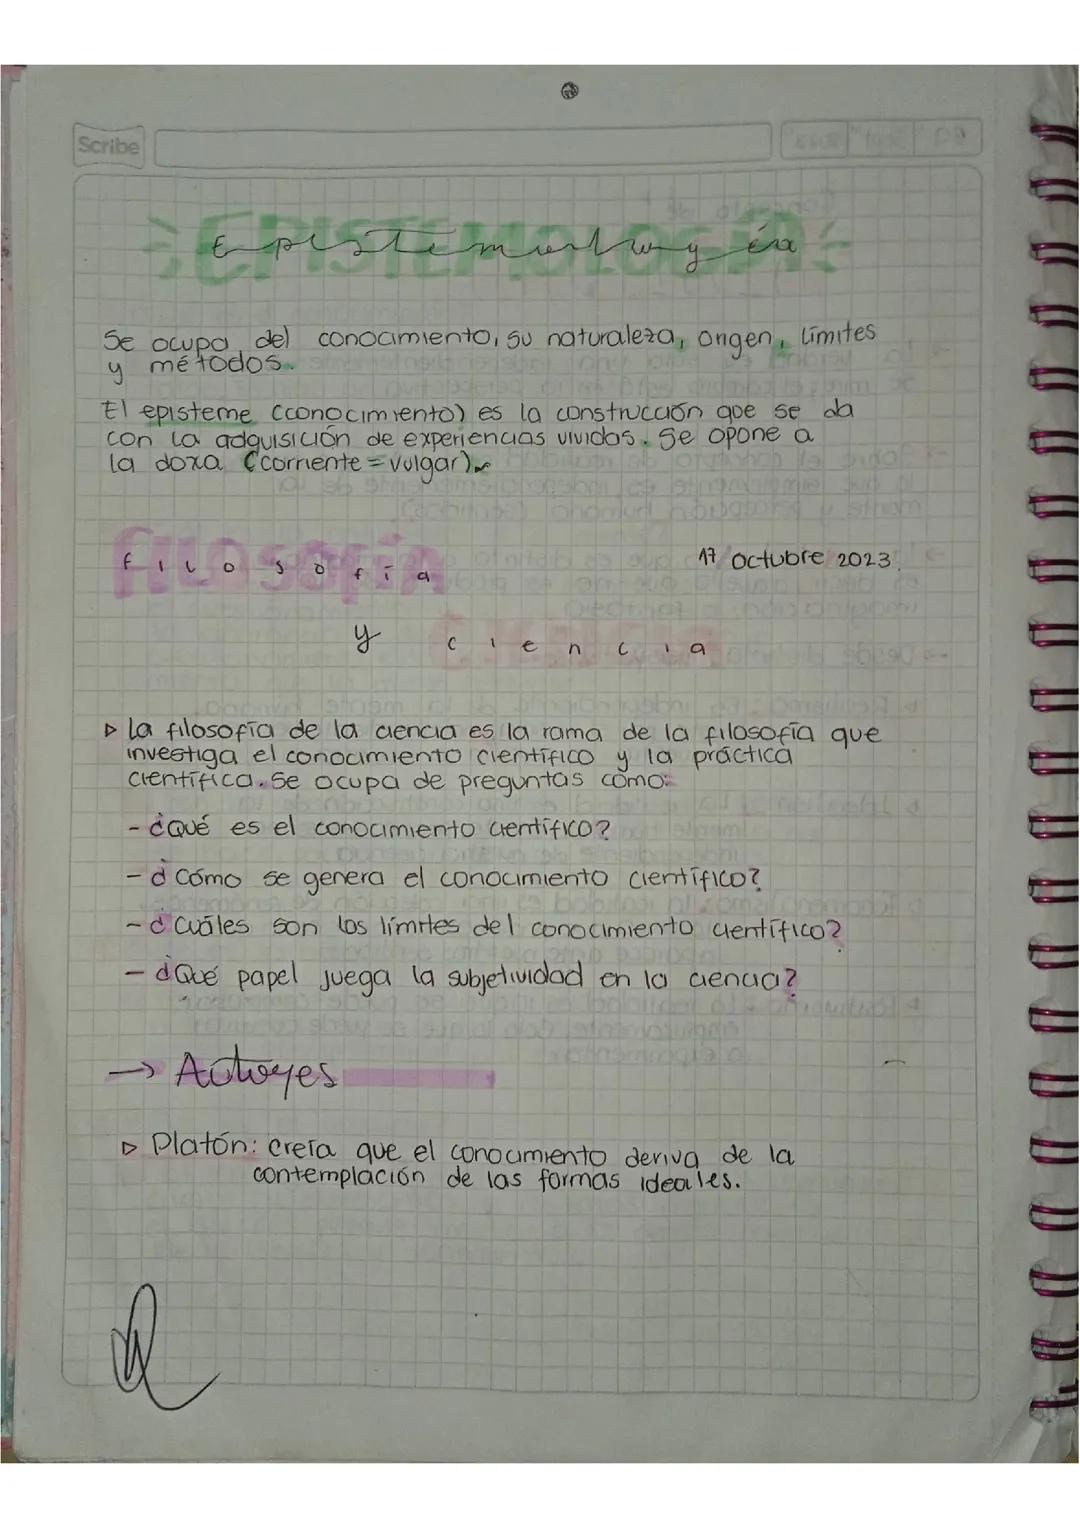 Scribe
Epistemología
Se ocupa del conocimiento, su naturaleza, origen, límites
y métodos.
El episteme (conocimiento) es la construcción que se da
con la adquisición de experiencias vividas. Se opone a
la doxa (corriente = vulgar).
Filosofía
17 octubre 2023.
y ciencia
▷ La filosofía de la ciencia es la rama de la filosofía que
investiga el conocimiento científico y la práctica
científica. Se ocupa de preguntas como:
- ¿Qué es el conocimiento científico?
- ¿Cómo se genera el conocimiento científico?
- ¿Cuáles son los límites del conocimiento científico?
- ¿Qué papel juega la subjetividad en la ciencia?
→ Autores
▷ Platón: creía que el conocimiento deriva de la
contemplación de las formas ideales.